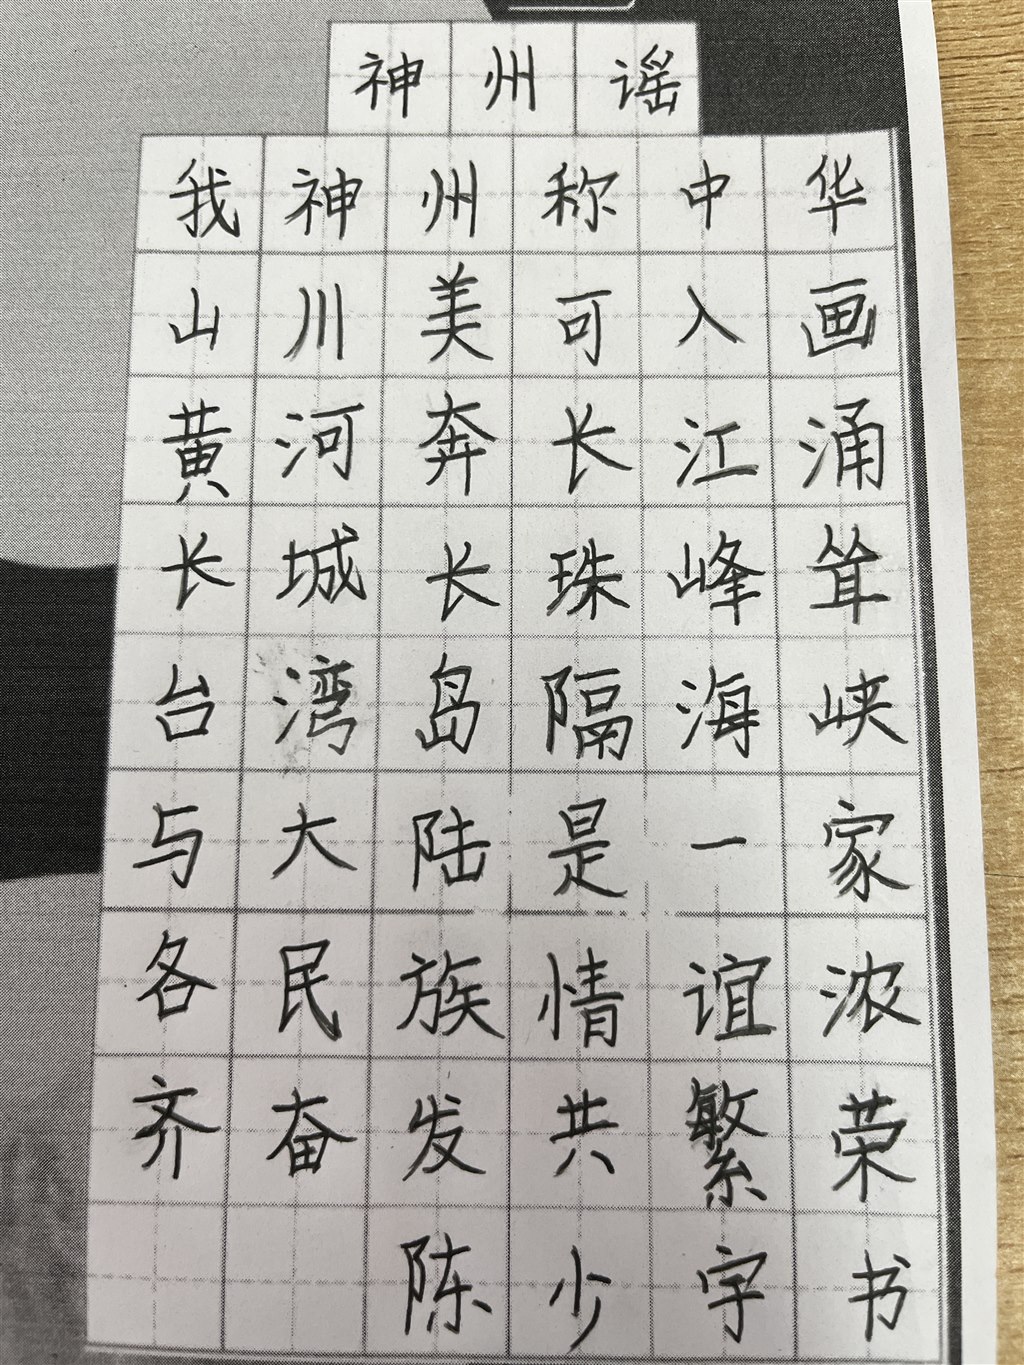 神州谣
我神州称中华
山川美可入画
黄河奔长江涌
长城长珠峰耸
台湾岛隔海峡
与大陆是一家
各民族情谊浓
齐奋发共繁荣
陈少宇书